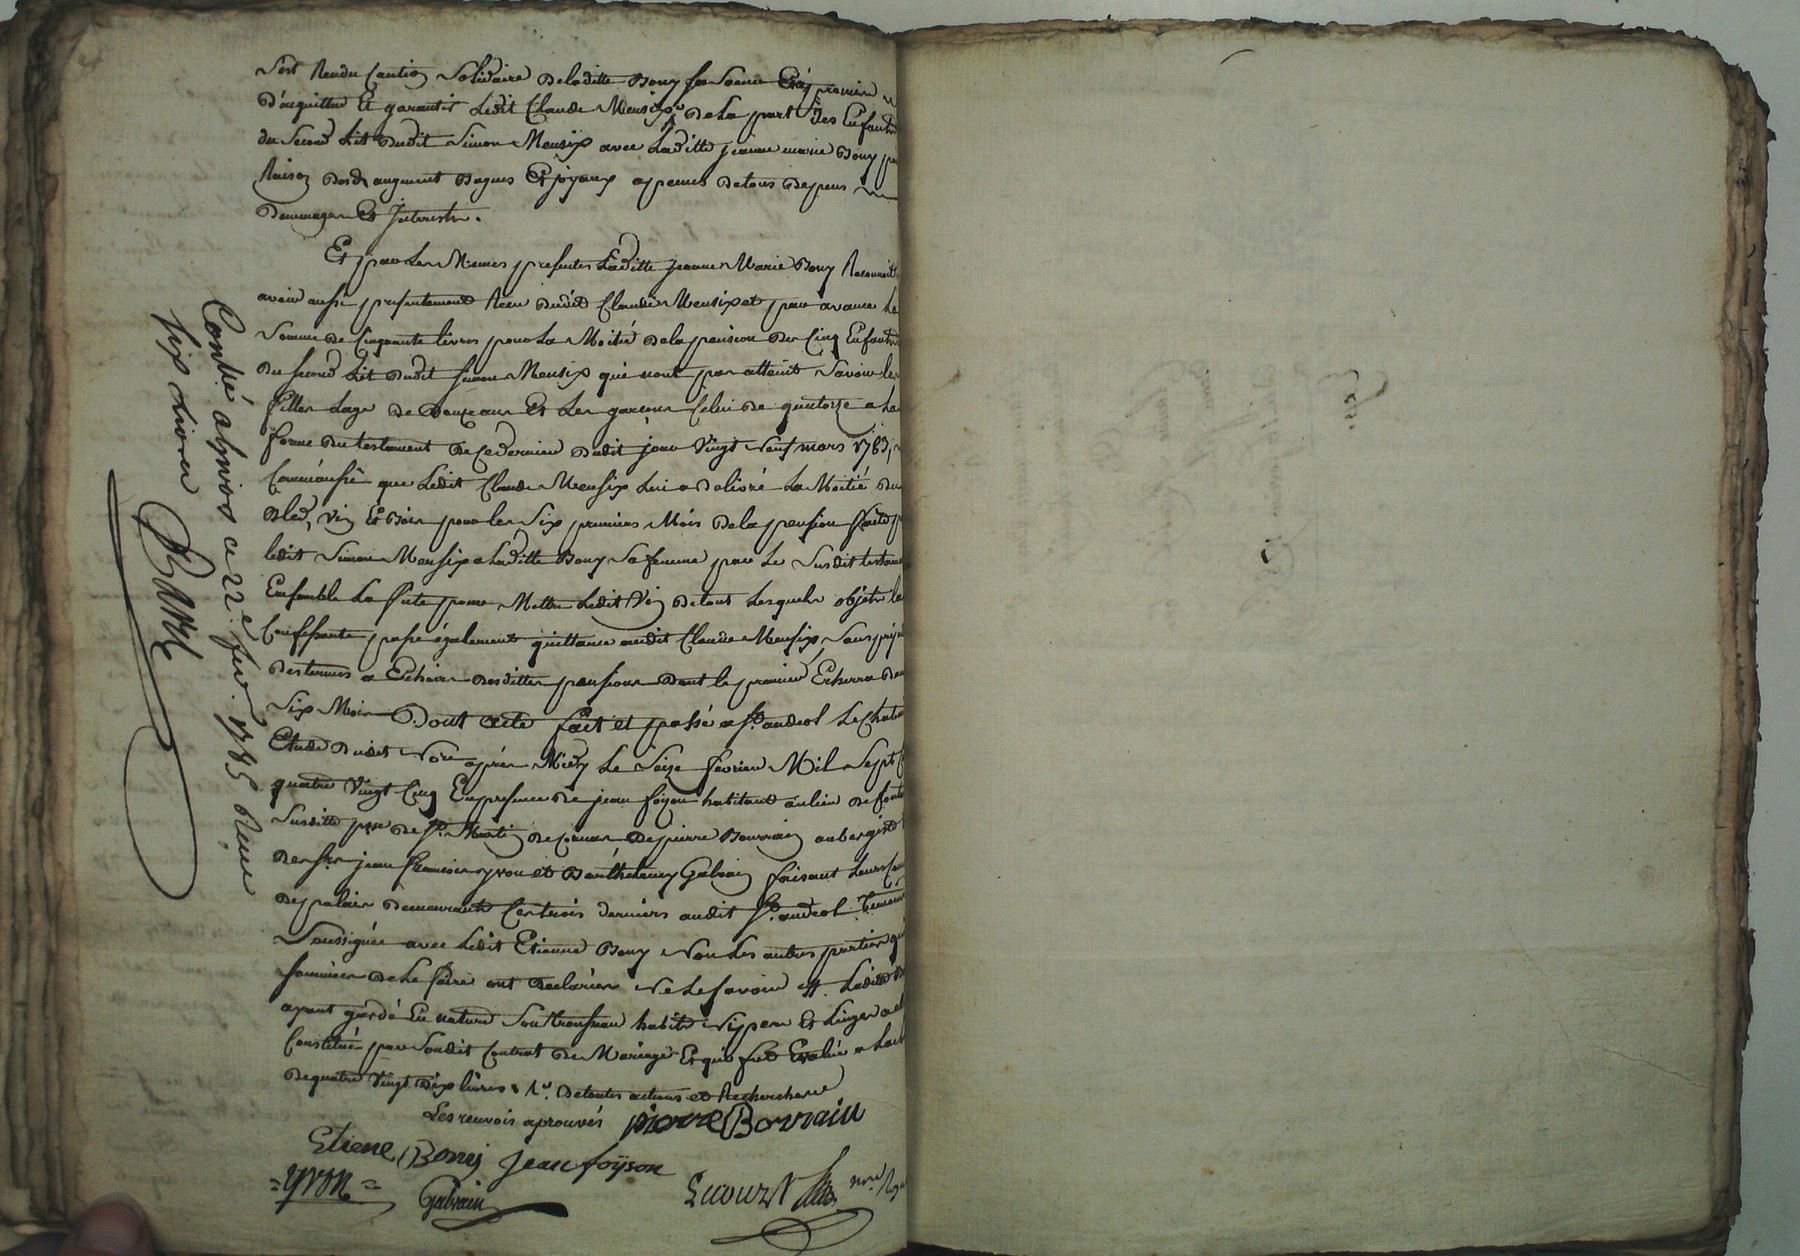 s'est Rendu Caution Solidaire de laditte Bouy sa Soeur Et promis
d'acquitter Et garantir Ledit Claude Meusix de La part des Enfants
du Second Lit dudit Simon Meusix avec Laditte jeanne marie Bouy pr
Raison augment Bagues Et joyaux a peine de tous depens
Dommages Et Interests.
Et par Les Memes presentes Laditte jeanne Marie Bouy Reconnoit
avoir aussi presentement Reçu dudit Claude Meusix et par avance La
Somme de Cinquante livres pour La Moitié de la pension des Cinq Enfants
du second Lit dudit Simon Meusix qui nont pas atteint Savoir les
filles Lage de douze ans Et Les garcons Celui de quatorze a La
forme du testament de Ce dernier dudit jour Vingt Neuf mars 1783,
Comm'aussi que Ledit Claude Meusix Lui a delivré La Moitié du
Bled, Vin Et Bois pour les Six premiers Mois de la pension
ledit Simon Meusix a Laditte Bouy Sa femme par Le Susdit testam
Ensemble La futte pour Mettre Ledit Vin de tous Lesquels objets la
Confessante passe également quittance audit Claude Meusix Sans prej
des termes a Echeoir desdittes pensions dont le premier Echerra dans
Six Mois Dont acte fait et passé a St. andeol Le Chateau
Etude dudit Nore. après Midy Le Seize fevrier Mil Sept C
quatre Vingt Cinq En presence de jean foison habitant au lieu de
Susditte psse de St. Martin de Cornas de pierre Bourrin aubergiste
de srs. jean francois yvon et Barthelemy Galvain faisant Leurs
de palais demeurants Ces trois derniers audit St. andeol Temoins
Soussignés avec Ledit Etienne Bouy Non Les autres parties qui
sommées de Le faire ont declarées Ne Le savoir Laditte
ayant gardé En nature Son trousseau habits Nippes Et Linges a elle
Constitué par Sondit Contrat de Mariage Et qui fut Evalué a La
de quatre Vingt dix livres. de toutes actions et Recherches
Les renvois aprouvés pierre Bovrain
Etiene Bony Jean foÿson
=yvon=
Galvain
nore. Ro
Contlé a givors ce 22e. fev. 1785 Reçu
six livres